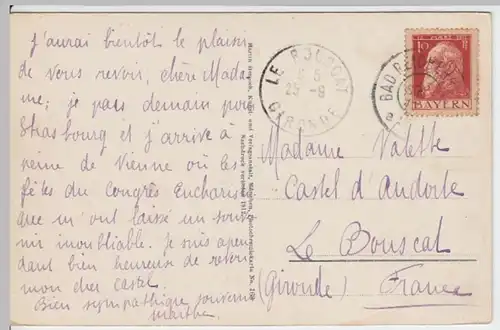 J'aurai bientôt le plaisir
de vous revoir, chère Mada-
me; je pars demain pour
Strasbourg et j'arrive à
peine de Vienne où les
fêtes du Congrès Eucharis-
tique m'ont laissé un souve-
nir inoubliable. Je suis cepen-
dant bien heureuse de revoir
mon cher Castel.
Bien sympathique souvenir
Marthe.
LE BOUSCAT
25 -9
GIRONDE
BAD
10
BAYERN
Madame Valette
Castel d'Andorte
Le Bouscat
(Gironde) France